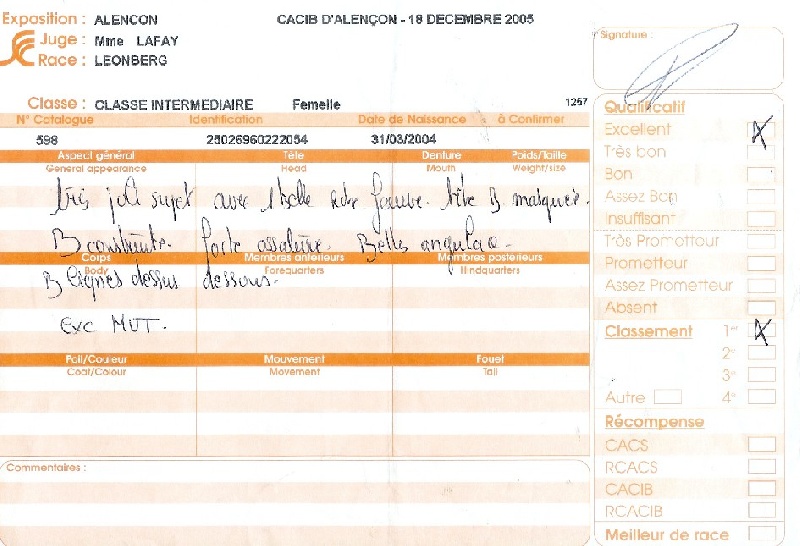 Exposition : ALENCON
CACIB D'ALENÇON - 18 DECEMBRE 2005
Juge : Mme LAFAY
Race : LEONBERG
Signature :
Classe : CLASSE INTERMEDIAIRE Femelle
1257
N° Catalogue Identification Date de Naissance à Confirmer
598 25026960222054 31/03/2004
Aspect général Tête Denture Poids/Taille
General appearance Head Mouth Weight/size
très joli sujet avec 1 belle robe fauve. tête B masquée.
B construite. forte ossature. Belles angulat.
Corps Membres antérieurs Membres postérieurs
Body Forequarters Hindquarters
B lignes dessus dessous.
Exc MVT.
Poil/Couleur Mouvement Fouet
Coat/Colour Movement Tail
Commentaires :
Qualificatif
Excellent X
Très bon
Bon
Assez Bon
Insuffisant
Très Prometteur
Prometteur
Assez Prometteur
Absent
Classement 1er X
2e
3e
Autre 4e
Récompense
CACS
RCACS
CACIB
RCACIB
Meilleur de race